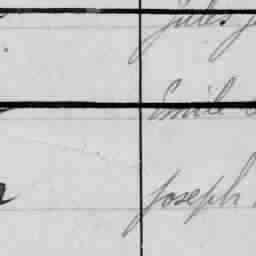 Jules
Emile
Joseph